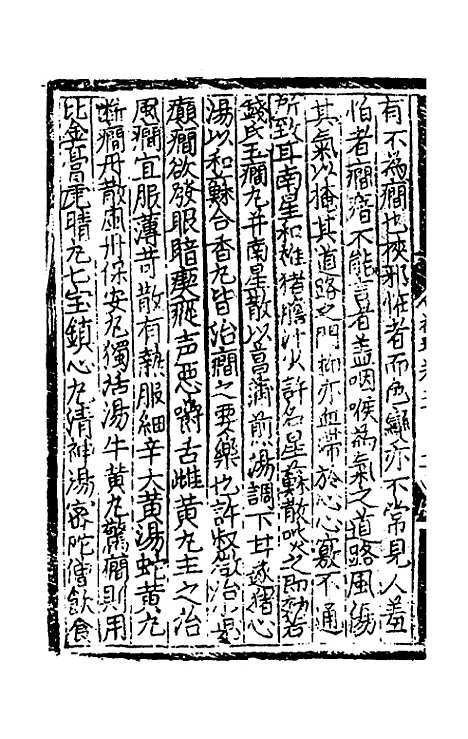 有不为癇也挾邪怪者而色變亦不常見人羞
怕者癇瘖不能言者盖咽喉為氣之道路風傷
其氣以掩其道路之門抑亦血滞於心心竅不通
所致耳南星和雄猪膽汁少許名星蘇散啖之即効若
錢氏五癇丸并南星散以菖蒲煎湯調下甘遂猪心
湯以和蘇合香丸皆治癇之要藥也許叔微治
癲癇欲發眼暗瘈瘲声惡嚼舌雌黄丸主之治
風癇宜服薄荷散有熱服細辛大黄湯蛇黄丸
断癇丹散風丹保安丸獨活湯牛黄丸驚癇則用
比金膏定睛丸七宝鎮心丸清神湯密陀僧飲食